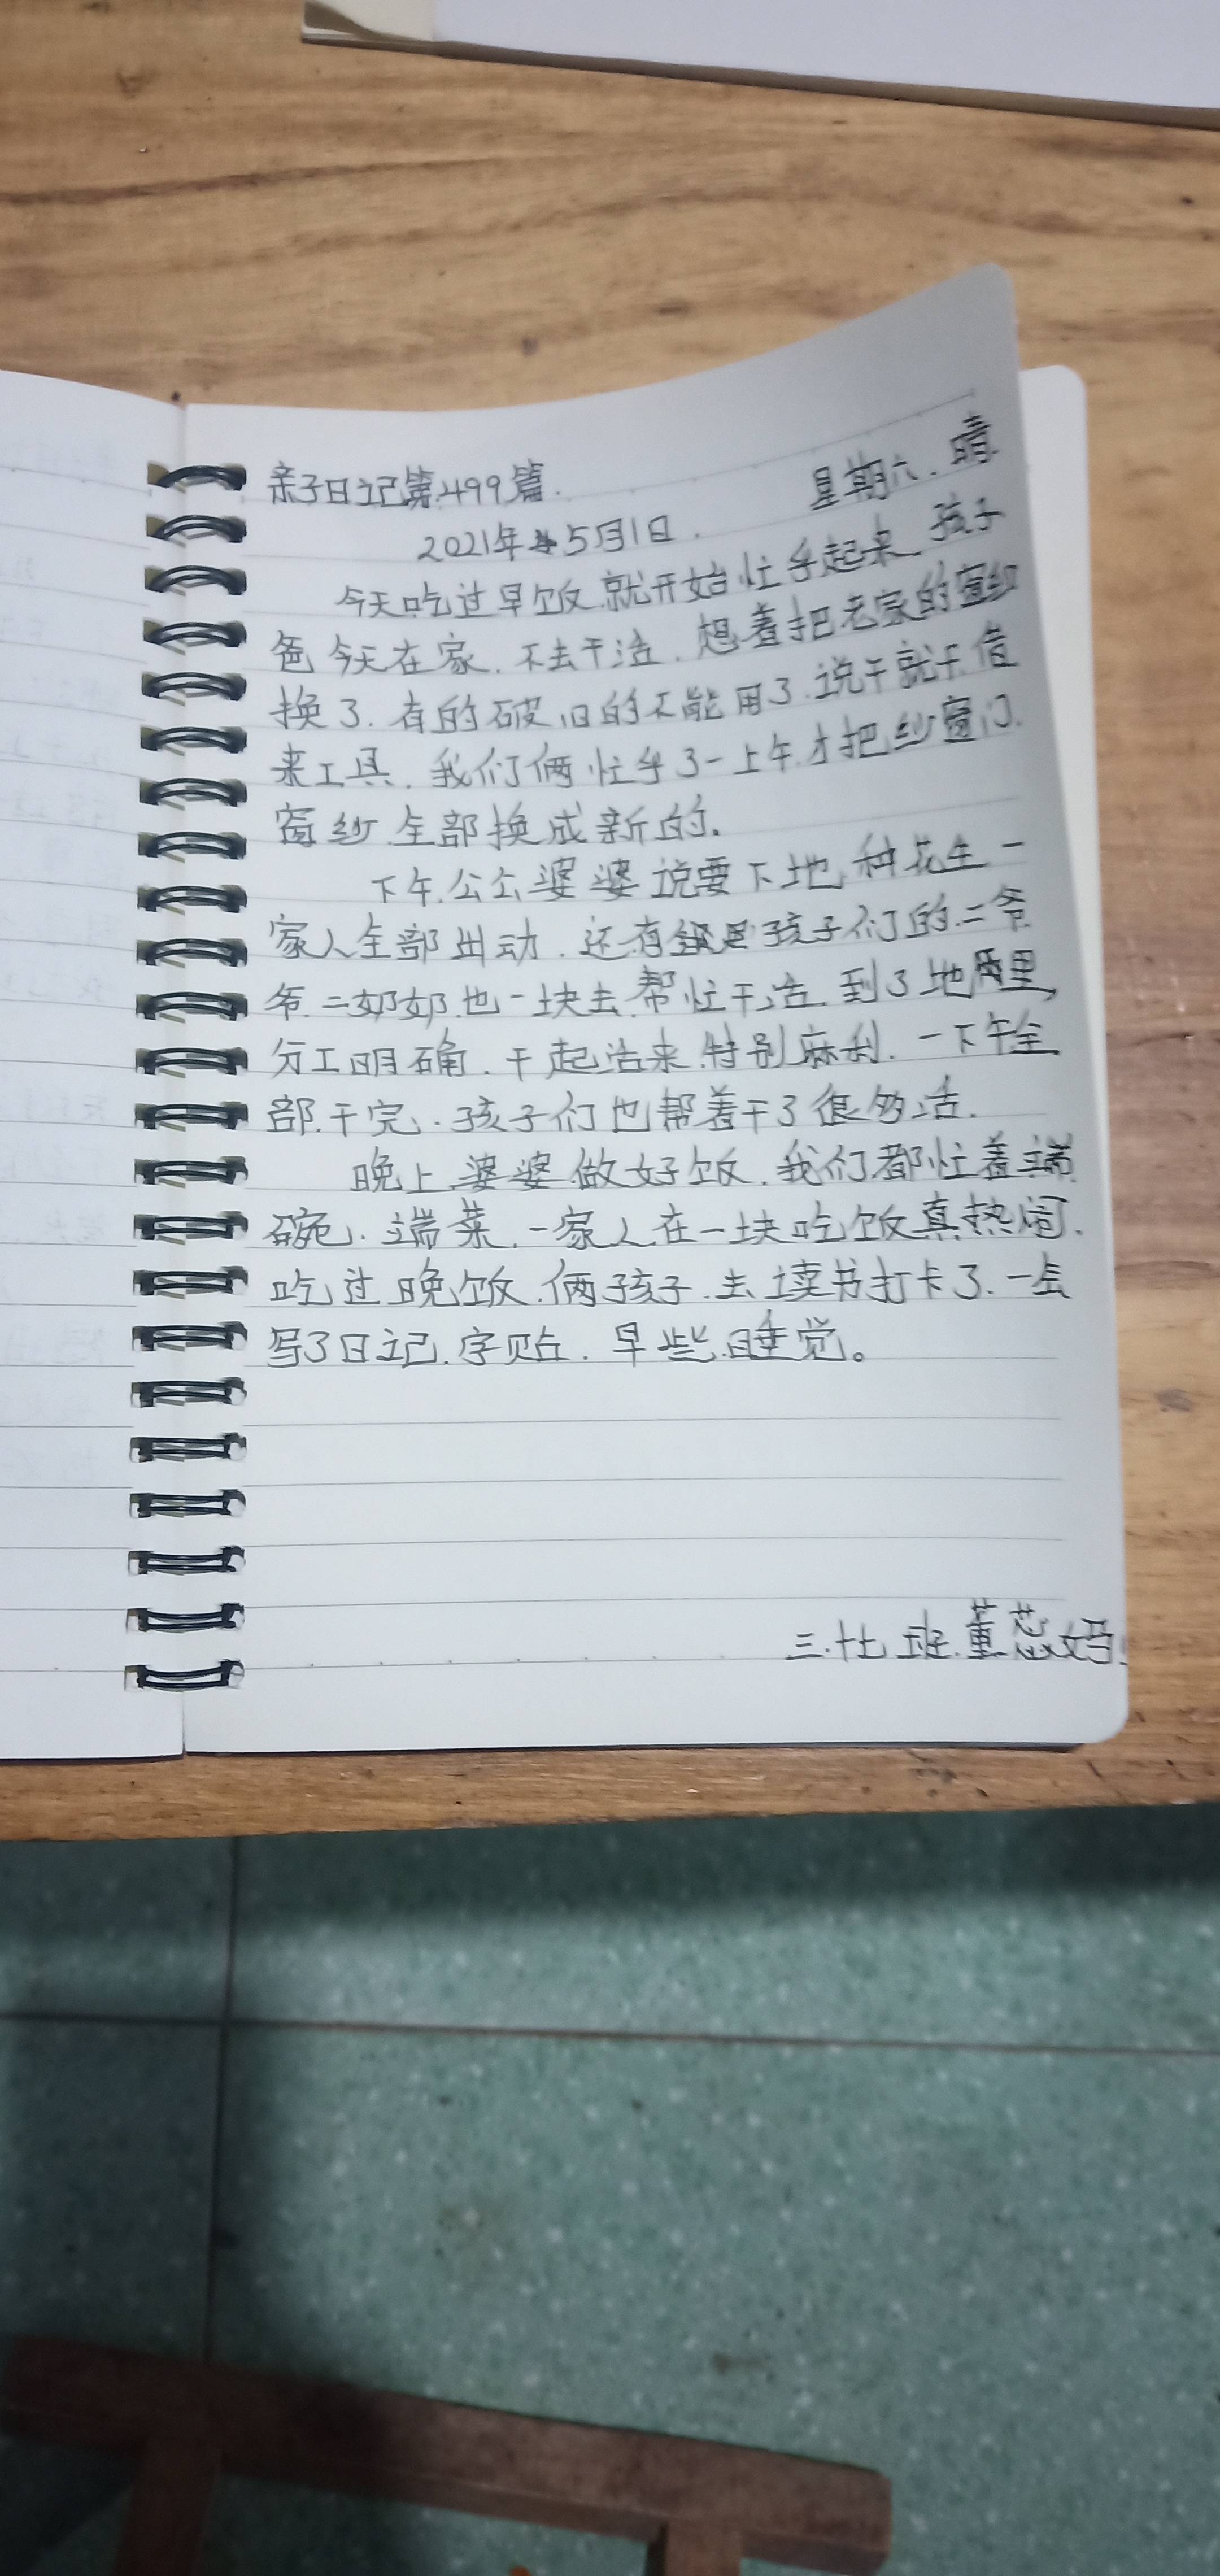 亲子日记第499篇. 星期六. 晴.
2021年5月1日.
今天吃过早饭.就开始忙乎起来 孩子
爸今天在家. 不去干活. 想着把老家的窗纱
换了. 有的破旧的不能用了. 说干就干. 借
来工具. 我们俩忙乎了一上午. 才把纱窗门.
窗纱全部换成新的.
下午.公公婆婆说要下地 种花生 一
家人全部出动. 还有 孩子们的.二爷
爷.二奶奶.也一块去.帮忙干活. 到了地里,
分工明确. 干起活来.特别麻利. 一下午全
部.干完. 孩子们也帮着干了很多活.
晚上.婆婆做好饭. 我们都忙着端
碗. 端菜. 一家人.在一块吃饭真热闹.
吃过晚饭.俩孩子.去读书打卡了. 一会
写了日记.字贴. 早些.睡觉。
三.十七班.董蕊妈!